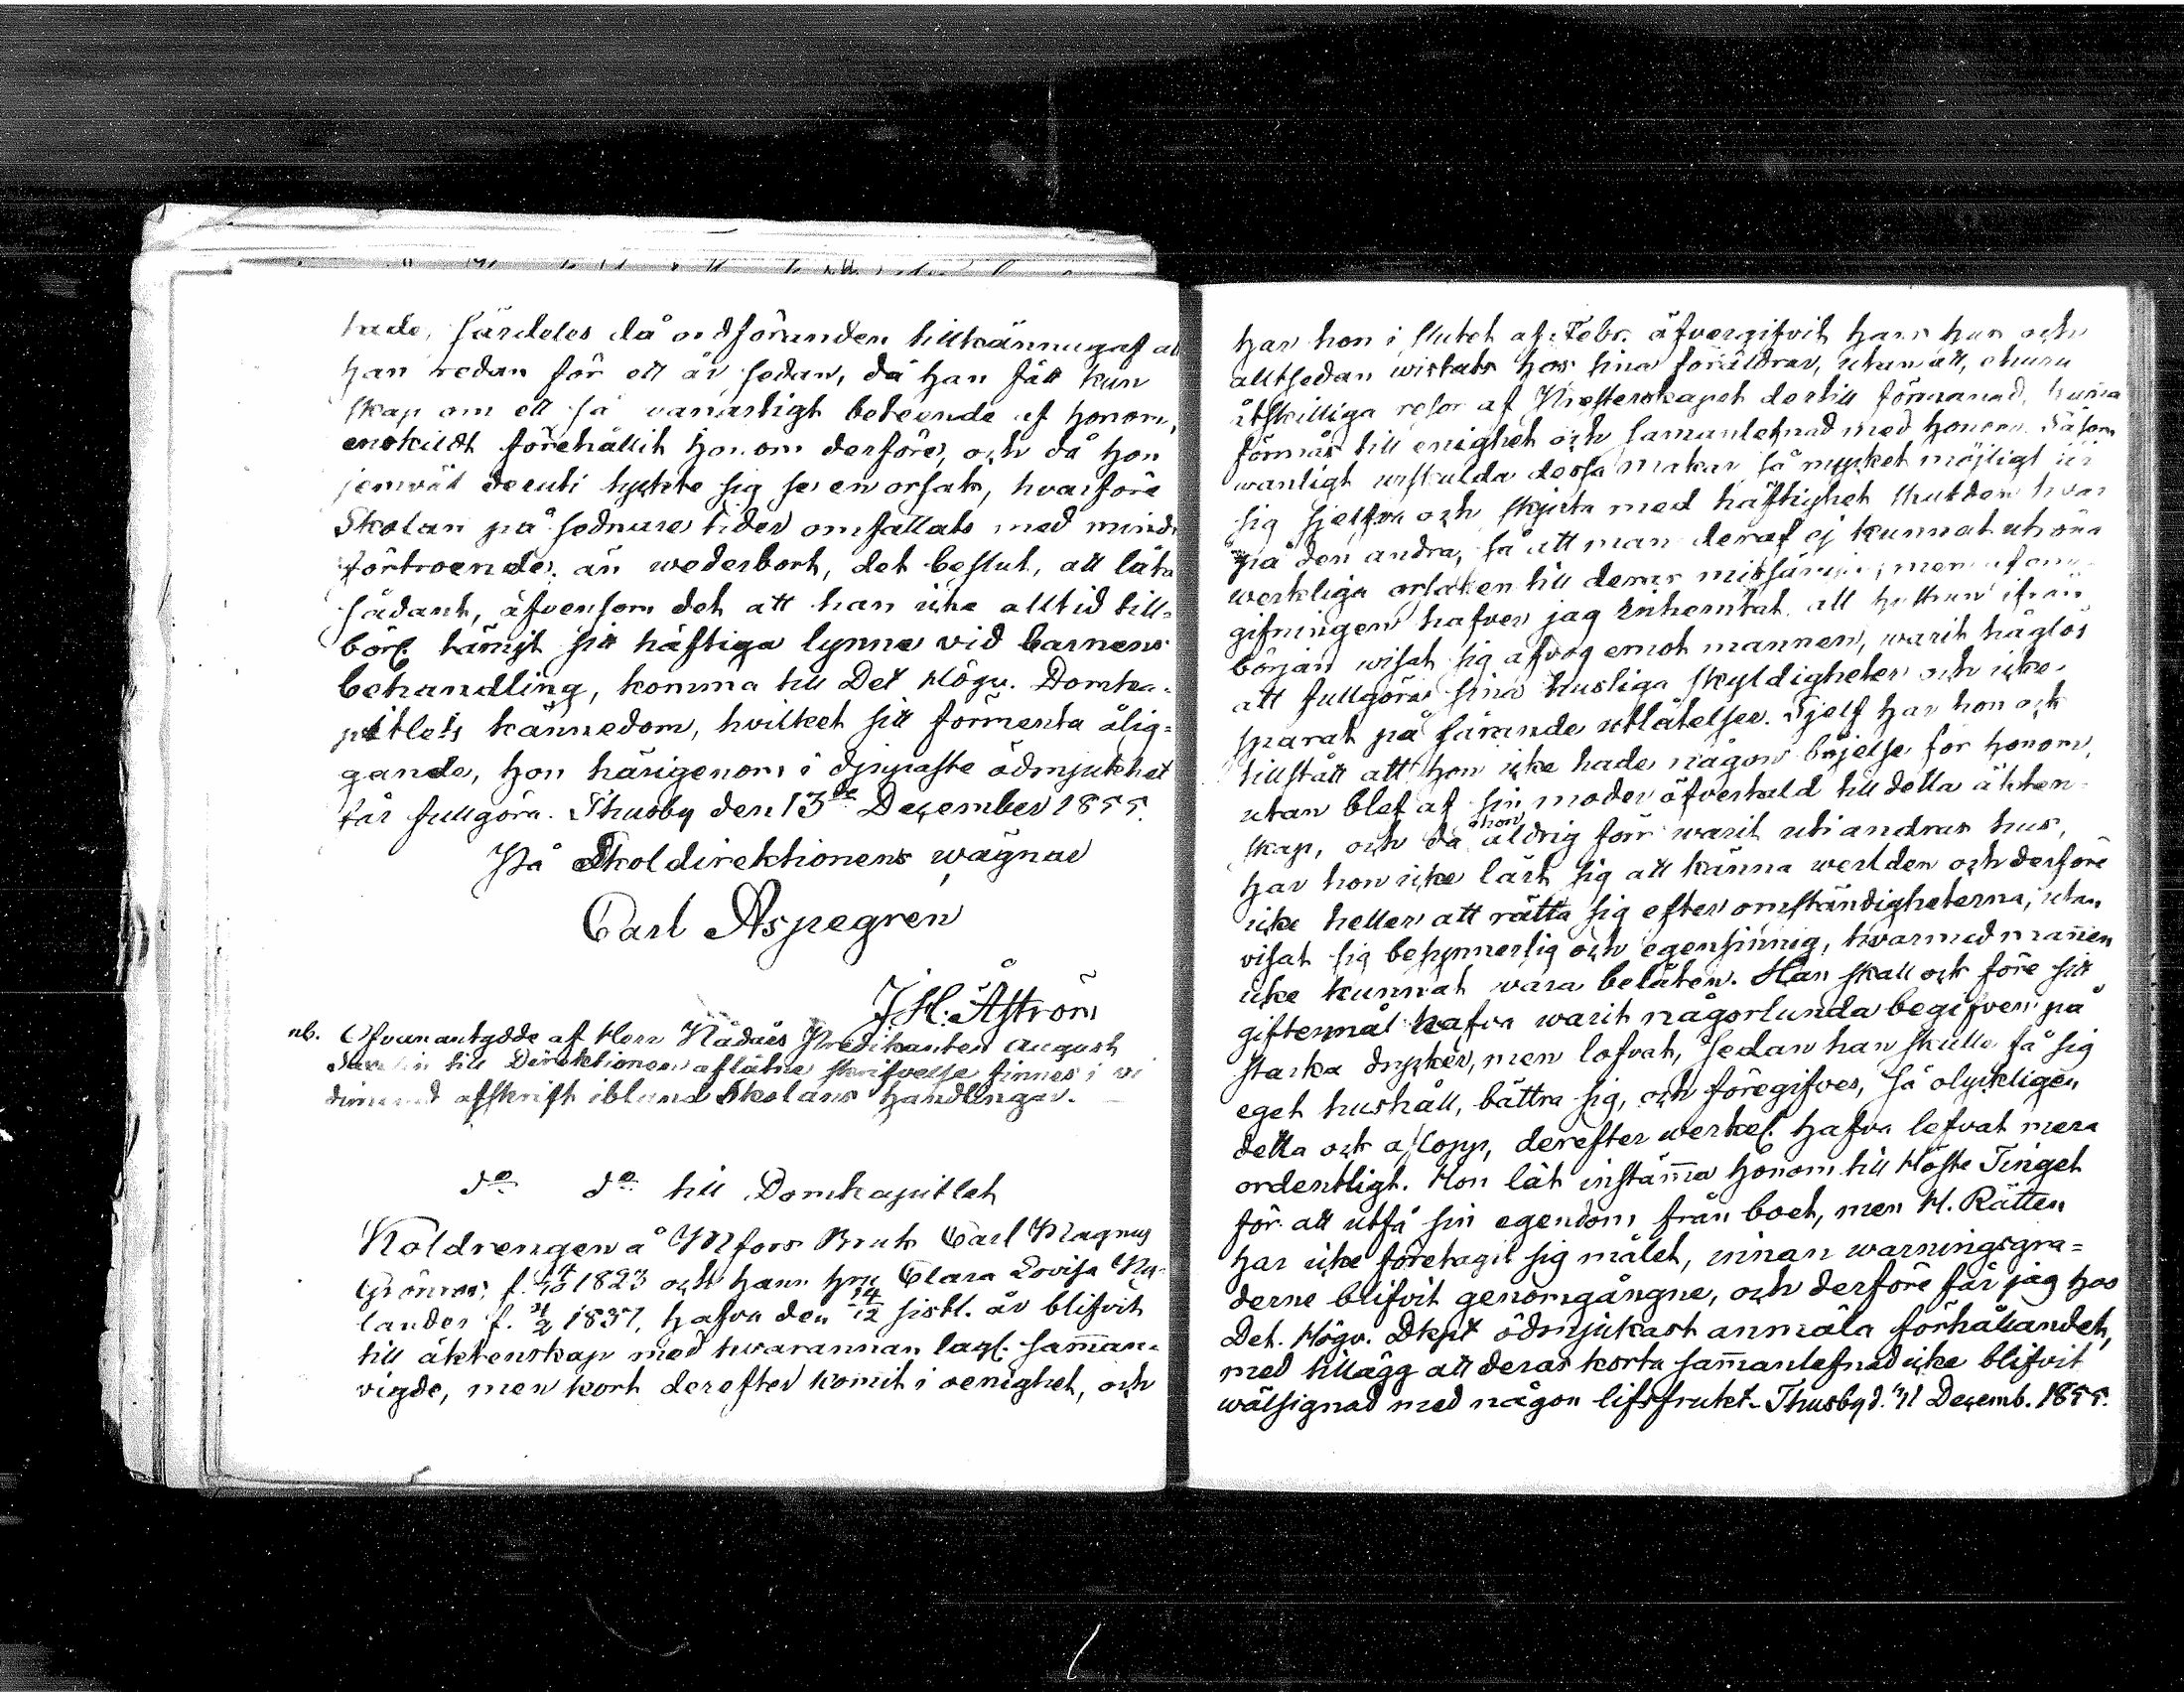 hade, särdeles då ordföranden tillkännagaf att
han redan för ett år sedan, då han fått kun
skap om ett så vanartigt beteende af honom,
enskildt förehållit honom derföre, och då hon
jemväl deruti tyckte sig se en orsak, hvarföre
Skolan på sednare tider omfattats med mindre
förtroende, än wederbort, det beslut, att låta
sådant, äfvensom det att han icke alltid till-
börl. tämjt sitt häftiga lynne vid barnens
behandling, komma till Det Högv. Domka-
pitlets kännedom, hvilket sitt förmenta ålig-
gande, hon härigenom i djupaste ödmjukhet
får fullgöra. Thusby den 13de December 1855.
På Skoldirektionens wägnar
Carl Aspegren
J. H. Åström
nb. Ofvanantydde af Herr Nådårs Predikanten August
till Direktionen aflåtne skrifvelse finnes i vi
dimerad afskrift ibland Skolans Handlingar.
do do till Domkapitlet
Koldrengen å Mfors Bruk Carl Magnus
Grönroos, f. 14/10 1823 och hans hru Clara Lovisa Ny-
lander f. 4/2 1837, hafva den 14/12 sistl. år blifvit
till äktenskap med hvarannan lagl. samman-
vigde, men kort derefter komit i oenighet, och
har hon i slutet af Febr. öfvergifvit hans hus och
alltsedan wistats hos sina föräldrar, utan att, ehuru
åtskilliga resor af Presterskapet dertill förmanad, kunna
förmås till enighet och samanlefnad med honom. Såsom
wanligt urskulda dessa makar så mycket möjligt är
sig sjelfva och skjuta med häftighet skulden hvar
på den andra, så att man deraf ej kunnat utröna
werkliga orsaken till deras missämja, men af om
gifningen hafver jag inhemtat, att hustrun ifrån
början wisat sig afvog emot mannen, warit håglös
att fullgöra sina husliga skyldigheter och icke
sparat på sårande utlåtelser. Sjelf har hon ock
tillstått att hon icke hade någon böjelse för honom,
utan blef af sin moder öfvertald till detta äkten-
skap, och då hon aldrig förr warit uti andras hus,
har hon icke lärt sig att känna werlden och derföre
icke heller att rätta sig efter omständigheterna, utan
visat sig besynnerlig och egensinnig, hvarmed mannen
icke kunnat wara belåten. Han skall ock före sitt
giftermål hafva warit någorlunda begifven på
starka drycker, men lofvat, sedan han skulle få sig
eget hushåll, bättra sig, och föregifves, så olyckligen
detta ock aflopp, derefter werkel. hafva lefvat mera
ordentligt. Hon låt instämma honom till Höste Tinget
för att utfå sin egendom från boet, men H. Rätten
har icke företagit sig målet, innan warningsgra-
derne blifvit genomgångne, och derföre får jag hos
Det. Högv. Dkpt ödmjukast anmäla förhållandet,
med tillägg att deras korta sammanlefnad icke blifvit
wälsignad med någon lifsfrukt. Thusby d. 11 Decemb. 1855.